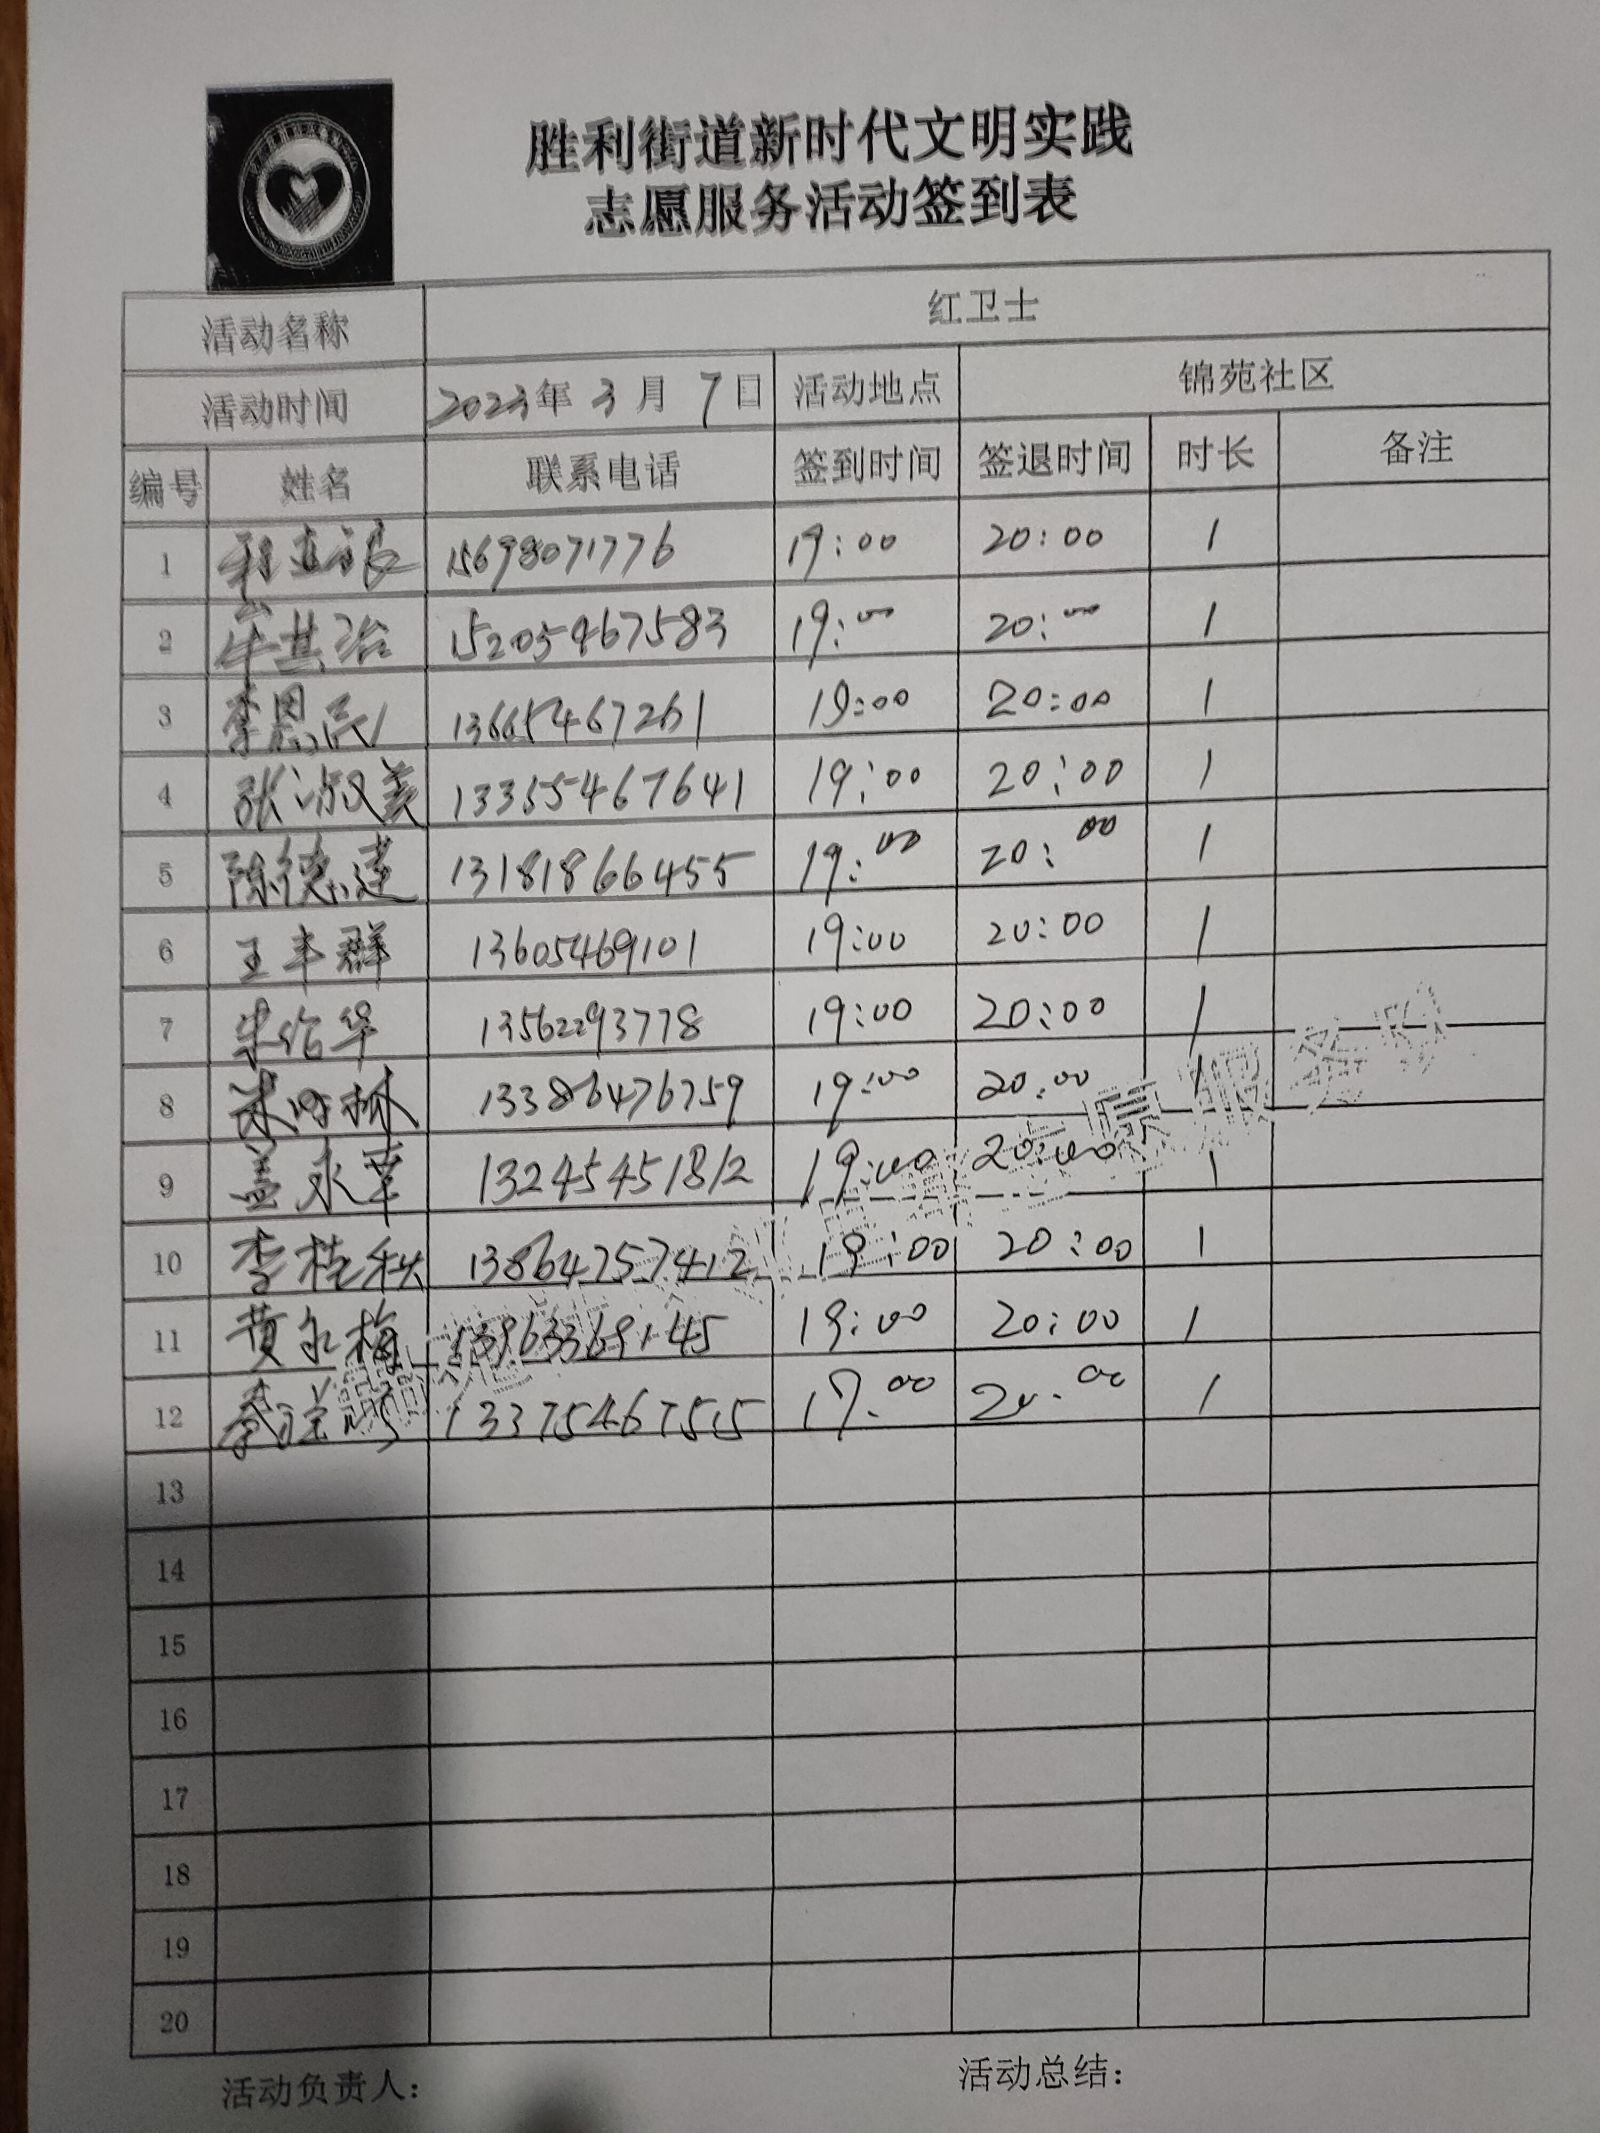 胜利街道新时代文明实践
志愿服务活动签到表
活动名称 红卫士
活动时间 2023年 3月 7日 活动地点 锦苑社区
编号 姓名 联系电话 签到时间 签退时间 时长 备注
1 15698071776 19:00 20:00 1
2 牟其治 15205467583 19:00 20:00 1
3 李恩民 13665467261 19:00 20:00 1
4 张淑美 13355467641 19:00 20:00 1
5 陈德建 13181866455 19:00 20:00 1
6 王丰群 13605469101 19:00 20:00 1
7 宋作华 13562293778 19:00 20:00 1
8 13386476759 19:00 20:00 1
9 盖永革 13245451812 19:00 20:00 1
10 李桂秋 13864757412 19:00 20:00 1
11 黄永梅 19:00 20:00 1
12 13375467515 1
13
14
15
16
17
18
19
20
活动负责人: 活动总结: